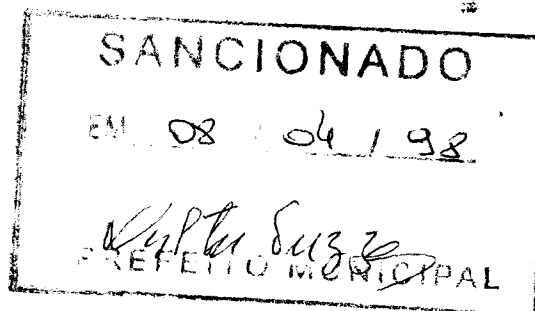 SANCIONADO
EM 08 / 04 / 98
PREFEITO MUNICIPAL